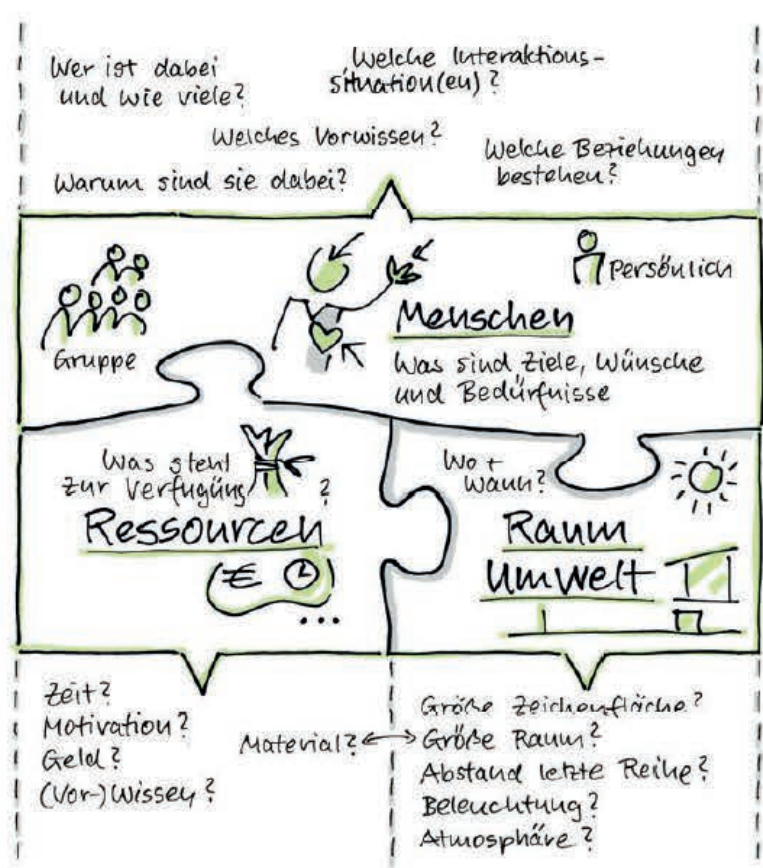 Wer ist dabei
und wie viele?
Welche Interaktions-
situation(en)?
Welches Vorwissen?
Welche Beziehungen
bestehen?
Warum sind sie dabei?
Gruppe
Persönlich
Menschen
Was sind Ziele, Wünsche
und Bedürfnisse
Was steht
zur Verfügung
?
Ressourcen
€
...
Wo +
Wann?
Raum
Umwelt
Zeit?
Motivation?
Geld?
(Vor-)Wissen?
Material?
Größe Zeichenfläche?
Größe Raum?
Abstand letzte Reihe?
Beleuchtung?
Atmosphäre?